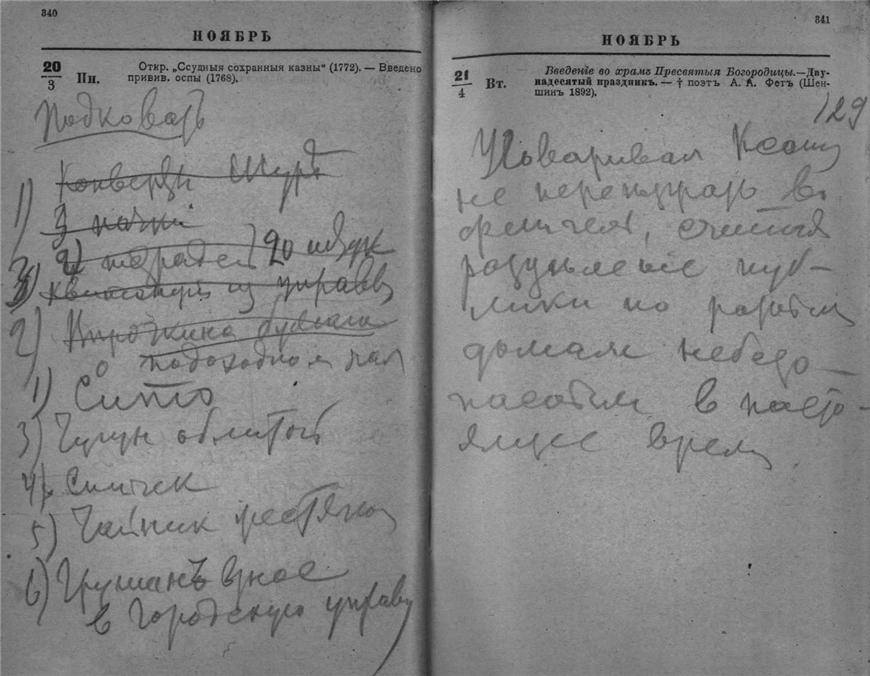 340
НОЯБРЬ
20
3
Пн.
Откр. „Ссудныя сохранныя казны" (1772). — Введено
привив. оспы (1768).
Подковать
1) Конверты Шуре
3 пачки
2) тетрадей 20 штук
3) Квитанции из управы
2) бумага
о подоходном нал
1) Сито
3) Чугун облитой
4)
5) Чайник жестяной
6)
в городскую управу
341
НОЯБРЬ
21
4
Вт.
Введеніе во храмъ Пресвятыя Богородицы.—Дву-
надесятый праздникъ. — † поэтъ А. А. Фетъ (Шен-
шинъ 1892).
129
Уговаривал Ксению
не переиграть во
флигеля, считая
разумление пуб-
лики по разным
домам небезо-
пасным в насто-
ящее время